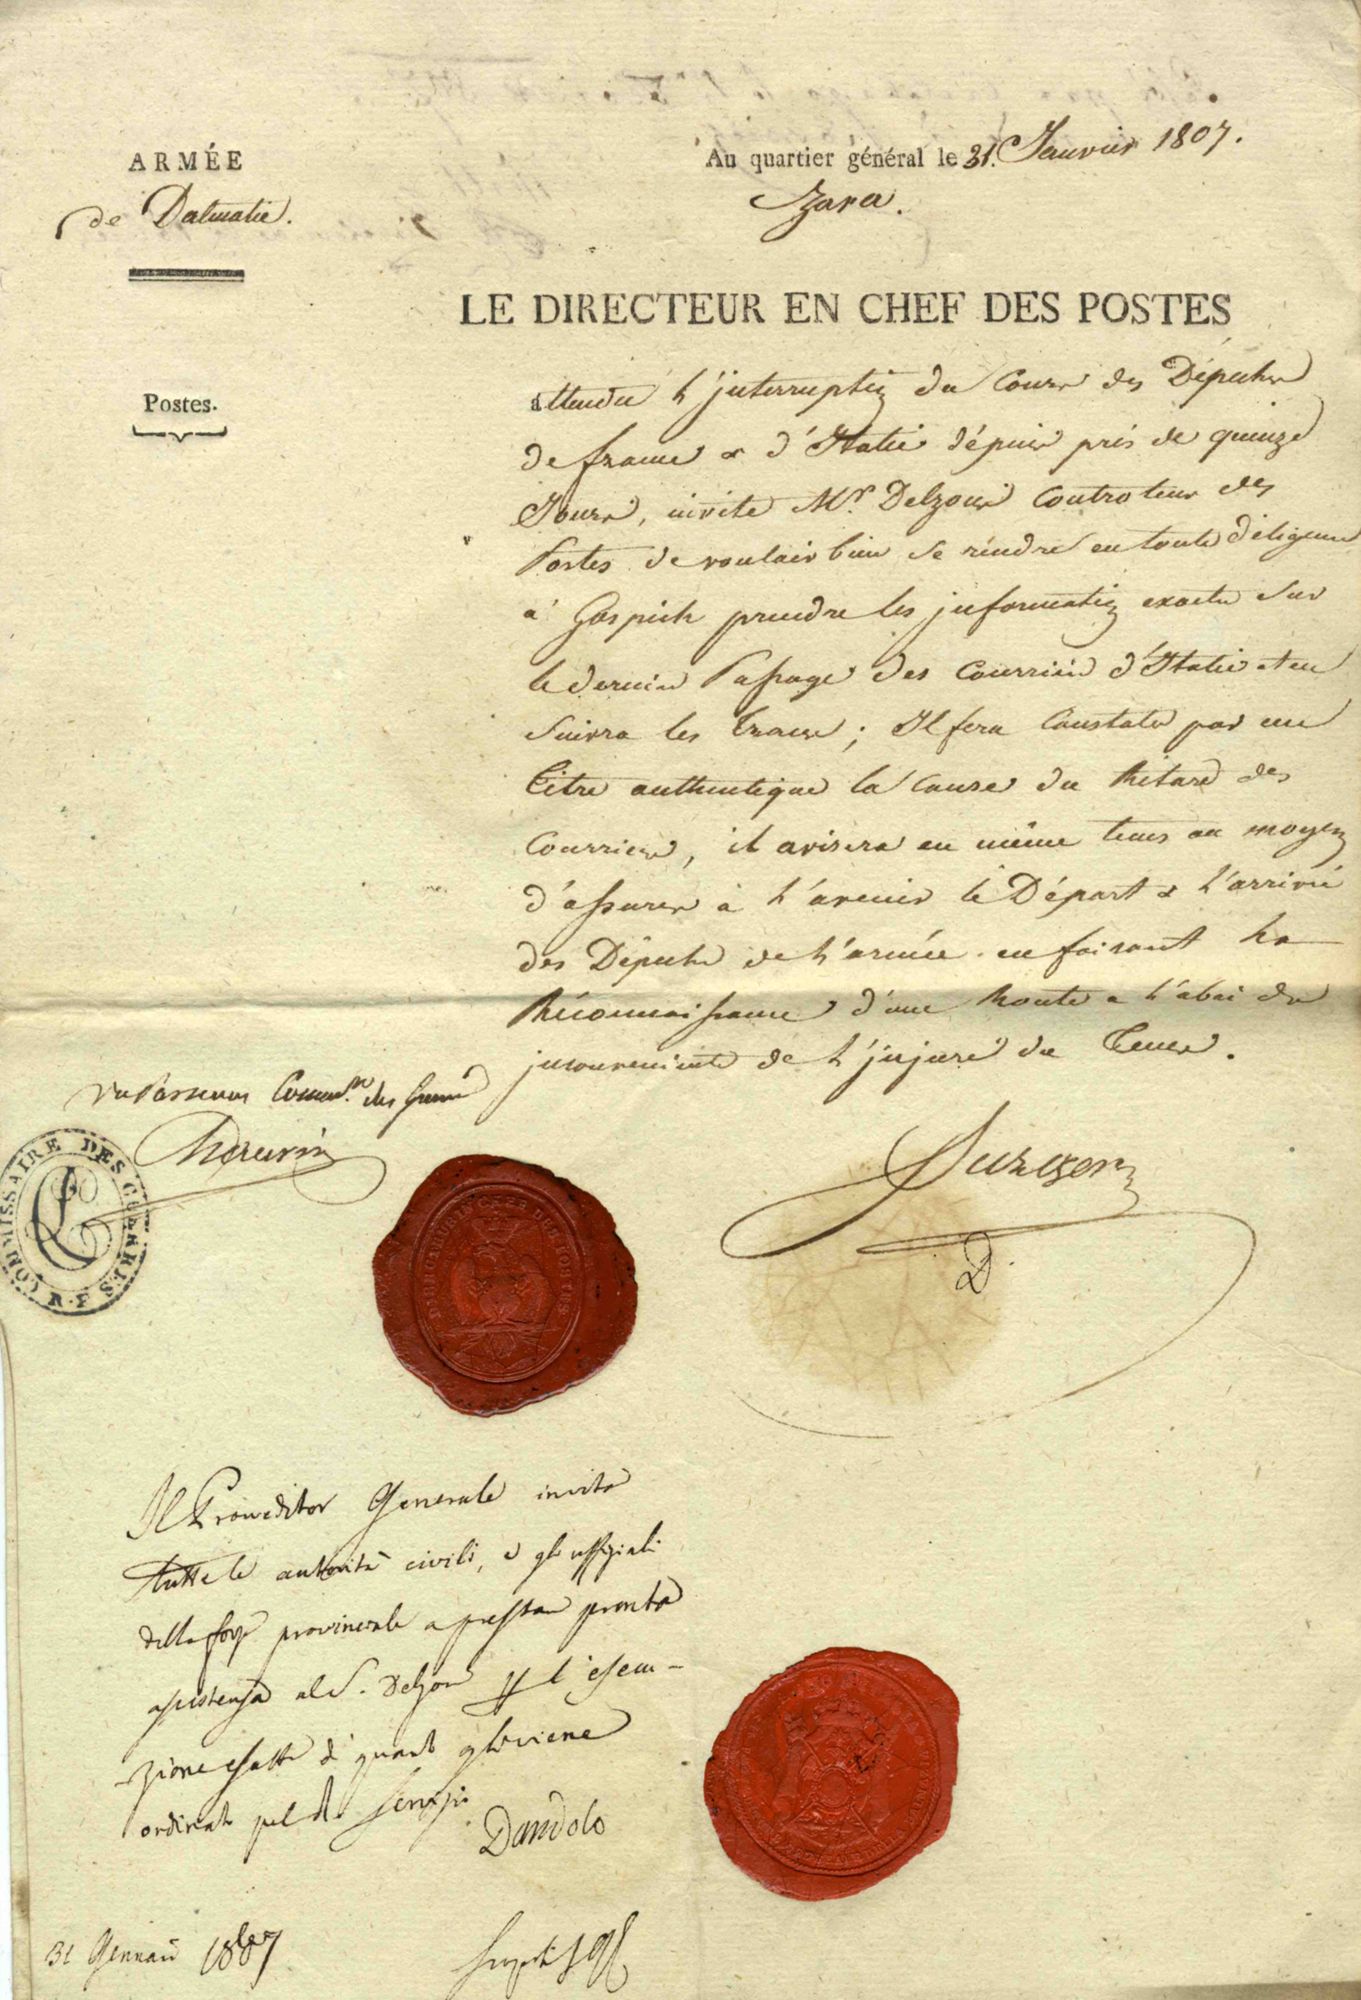 ARMÉE
de Dalmatie.
Au quartier général le 31. Janvier 1807.
Zara.
LE DIRECTEUR EN CHEF DES POSTES
Postes.
attendu l'interruption du Cours des Dépeches
de france & d'Italie dépuis prés de quinze
Jours, invite Mr. Delzous Controleur des
Postes de vouloir bien se rendre en toute diligence
à Gospich prendre les informations exactes sur
le dernier Passage des Courriers d'Italie et en
suivra les traces ; Il fera Constater par un
titre authentique la Cause du Retard des
Courriers, il avisera en même tems au moyen
d'assurer à l'avenir le Départ & l'arrivée
des Dépeches de l'armée en faisant la
Réconnaissance d'une Route a l'abri des
inconvenients de l'injure du Tems.
Vu Par nous Commre. des Guerres
COMMISSAIRE DES GUERRES
R.F.
DIRECTEUR EN CHEF DES POSTES
D.
Il Proveditor Generale invita
tutte le autorità civili, e gli uffiziali
della forza provinciale a prestar pronta
assistenza al S. Delzous per l'esecu-
zione esatta di quanto gli viene
ordinato pel do. Servizio
Dandolo
31 Gennaio 1807